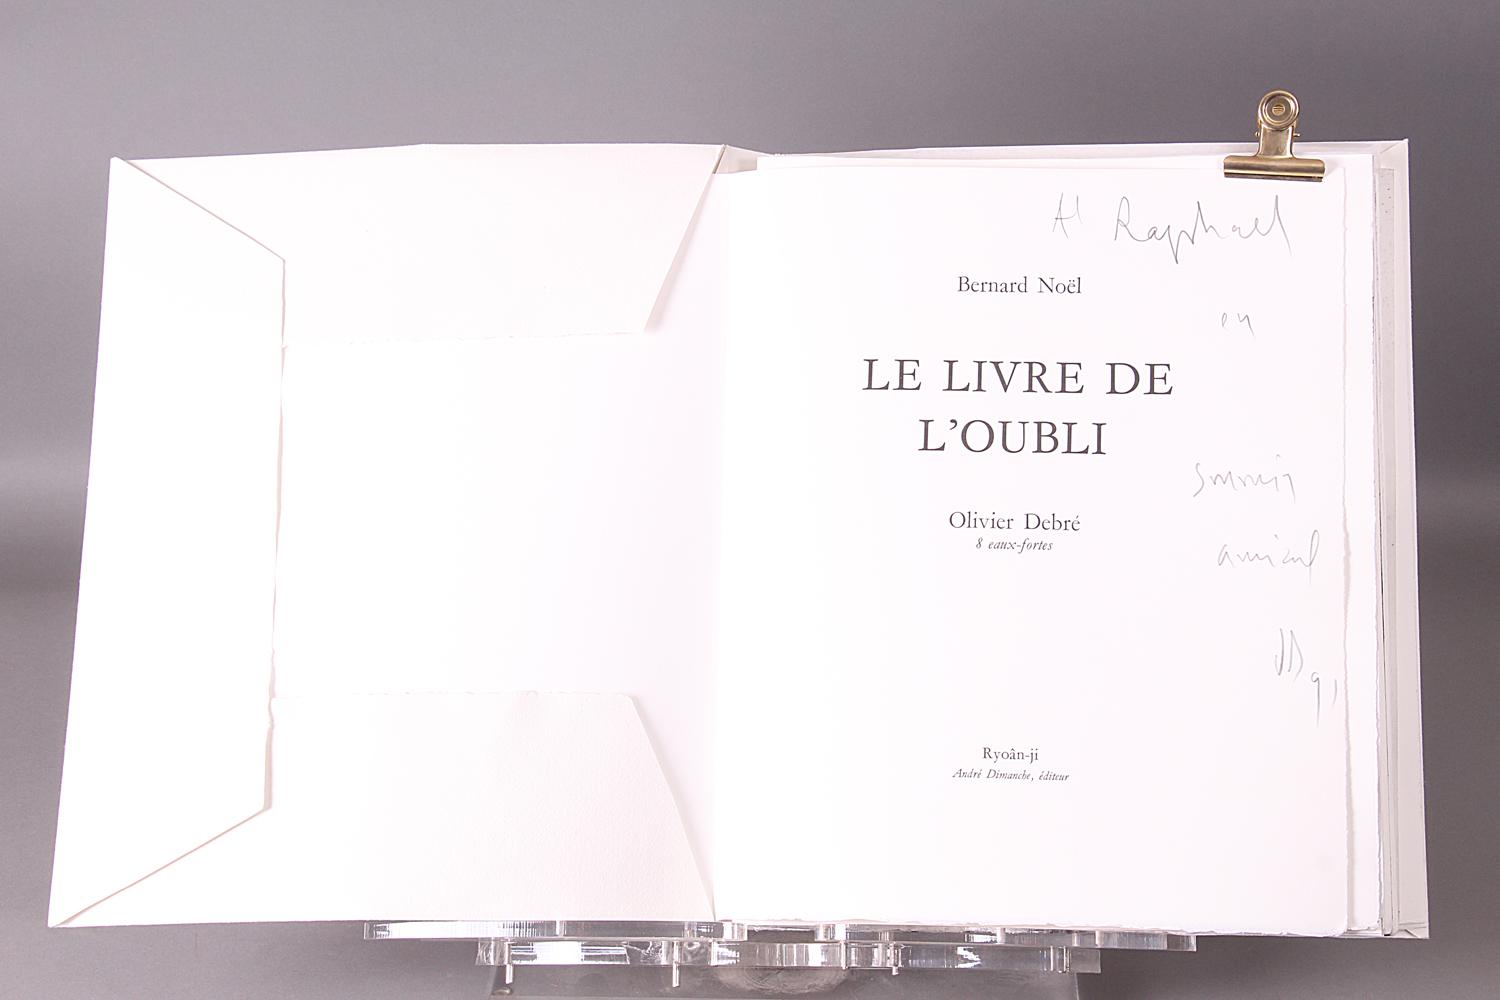 Raphael
Bernard Noël
en
LE LIVRE DE
L'OUBLI
Olivier Debré
8 eaux-fortes
Ryoân-ji
André Dimanche, éditeur
91